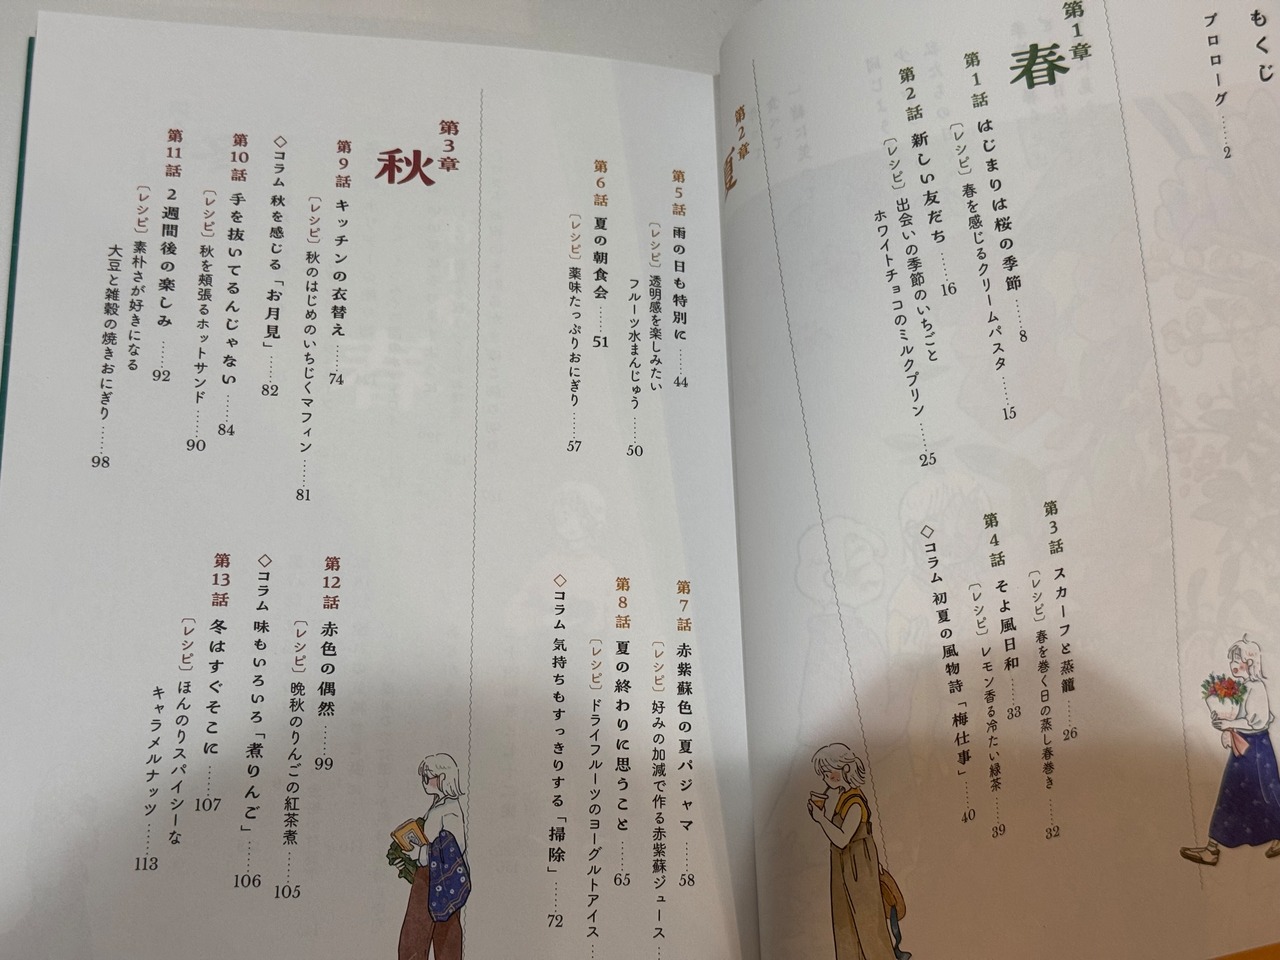 もくじ
プロローグ……2
第1章
春
第1話 はじまりは桜の季節……8
［レシピ］春を感じるクリームパスタ……15
第2話 新しい友だち……16
［レシピ］出会いの季節のいちごと
ホワイトチョコのミルクプリン……25
第3話 スカーフと蒸籠……26
［レシピ］春を巻く日の蒸し春巻き……32
第4話 そよ風日和……33
［レシピ］レモン香る冷たい緑茶……39
◇コラム 初夏の風物詩「梅仕事」……40
第2章
夏
第5話 雨の日も特別に……44
［レシピ］透明感を楽しみたい
フルーツ水まんじゅう……50
第6話 夏の朝食会……51
［レシピ］薬味たっぷりおにぎり……57
第7話 赤紫蘇色の夏パジャマ……58
［レシピ］好みの加減で作る赤紫蘇ジュース……
第8話 夏の終わりに思うこと……65
［レシピ］ドライフルーツのヨーグルトアイス……
◇コラム 気持ちもすっきりする「掃除」……72
第3章
秋
第9話 キッチンの衣替え……74
［レシピ］秋のはじめのいちじくマフィン……81
◇コラム 秋を感じる「お月見」……82
第10話 手を抜いてるんじゃない……84
［レシピ］秋を頬張るホットサンド……90
第11話 2週間後の楽しみ……92
［レシピ］素朴さが好きになる
大豆と雑穀の焼きおにぎり……98
第12話 赤色の偶然……99
［レシピ］晩秋のりんごの紅茶煮……105
◇コラム 味もいろいろ「煮りんご」……106
第13話 冬はすぐそこに……107
［レシピ］ほんのりスパイシーな
キャラメルナッツ……113